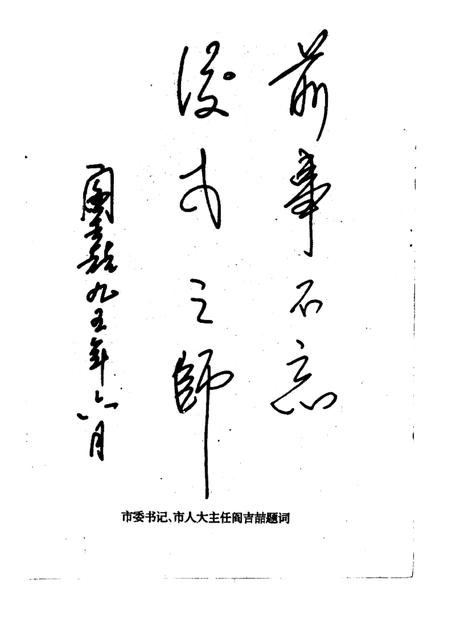 前事不忘
後事之師
阎吉喆九五年六月
市委书记、市人大主任阎吉喆题词